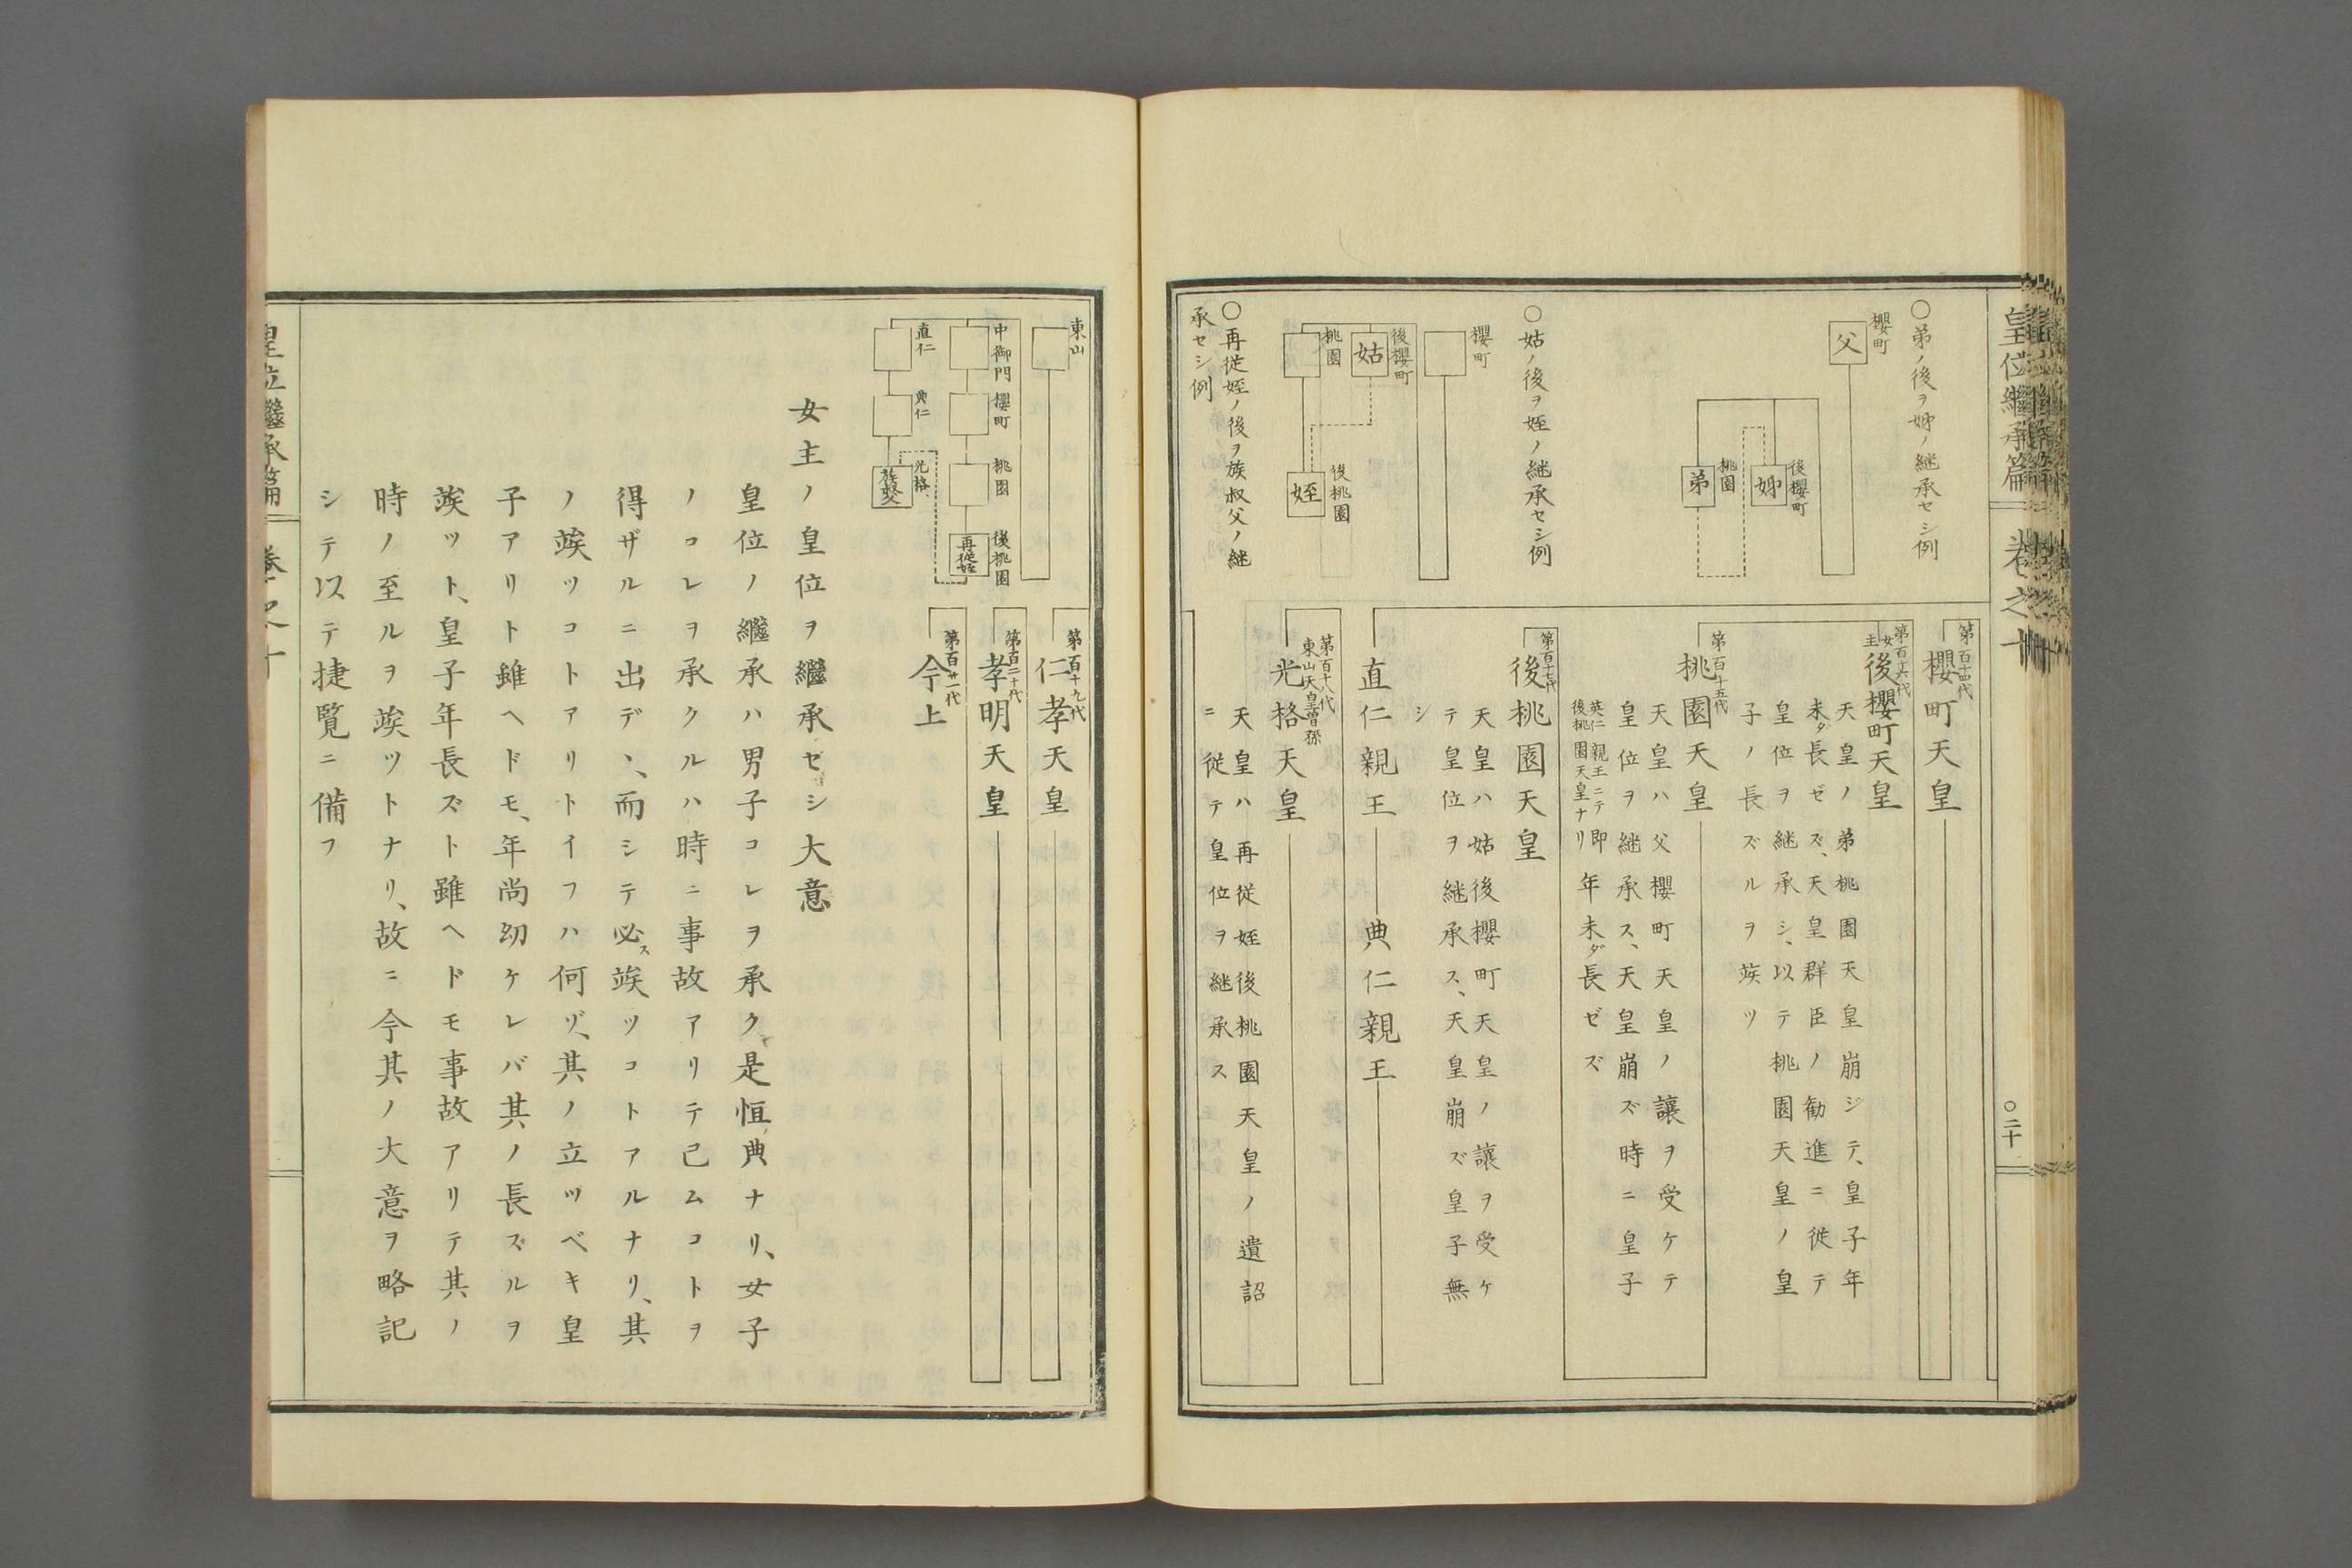 皇位繼承篇 卷之十 ○二十
○弟ノ後ヲ姉ノ継承セシ例
櫻町
父
後櫻町
姉
桃園
弟
○姑ノ後ヲ姪ノ継承セシ例
櫻町
後櫻町
姑
桃園
後桃園
姪
○再從姪ノ後ヲ族叔父ノ継
承セシ例
第百十四代
櫻町天皇
第百十六代
女主
後櫻町天皇
天皇ノ弟桃園天皇崩ジテ、皇子年
未ダ長ゼズ、天皇群臣ノ勧進ニ従テ
皇位ヲ継承シ、以テ桃園天皇ノ皇
子ノ長ズルヲ竢ツ
第百十五代
桃園天皇
天皇ハ父櫻町天皇ノ讓ヲ受ケテ
皇位ヲ継承ス、天皇崩ズ時ニ皇子
英仁親王ニテ即
後桃園天皇ナリ
年未ダ長ゼズ
第百十七代
後桃園天皇
天皇ハ姑後櫻町天皇ノ讓ヲ受ケ
テ皇位ヲ継承ス、天皇崩ズ皇子無
シ
直仁親王
典仁親王
第百十八代
東山天皇曽孫
光格天皇
天皇ハ再従姪後桃園天皇ノ遺詔
ニ従テ皇位ヲ継承ス
東山
中御門
櫻町
桃園
後桃園
再從姪
直仁
典仁
光格
族叔父
第百十九代
仁孝天皇
第百二十代
孝明天皇
第百廿一代
今上
女主ノ皇位ヲ繼承セシ大意
皇位ノ繼承ハ男子コレヲ承ク是恒典ナリ、女子
ノコレヲ承クルハ時ニ事故アリテ已ムコトヲ
得ザルニ出デヽ、而シテ必ス竢ツコトアルナリ、其
ノ竢ツコトアリトイフハ何ゾ、其ノ立ツベキ皇
子アリト雖ヘドモ、年尚幼ケレバ其ノ長ズルヲ
竢ツト、皇子年長ズト雖ヘドモ事故アリテ其ノ
時ノ至ルヲ竢ツトナリ、故ニ今其ノ大意ヲ略記
シテ以テ捷覧ニ備フ
皇位繼承篇 卷之十